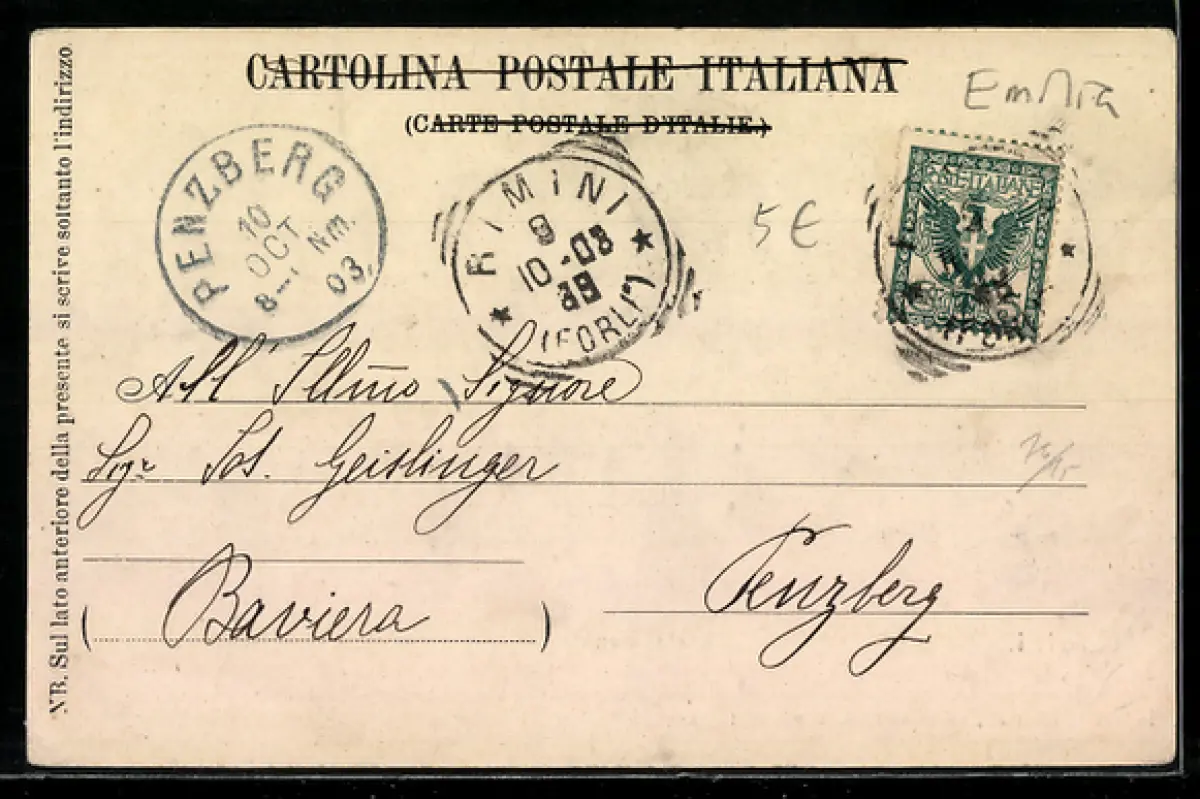 CARTOLINA POSTALE ITALIANA
(CARTE POSTALE D'ITALIE.)
Emilia
PENZBERG
10
OCT
8-
Nm.
03.
RIMINI
8
10-03
(FORLI)
5 €
All' Illmo Signore
Sigr Jos. Geislinger
Penzberg
( Baviera )
NB. Sul lato anteriore della presente si scrive soltanto l'indirizzo.